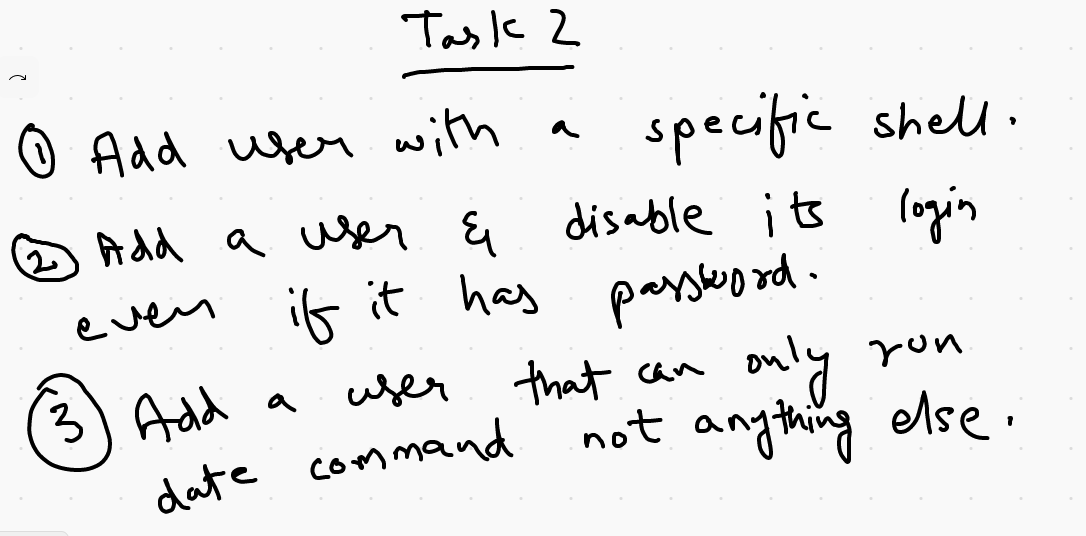 Task 2
① Add user with a specific shell.
② Add a user & disable its login
even if it has password.
③ Add a user that can only run
date command not anything else.